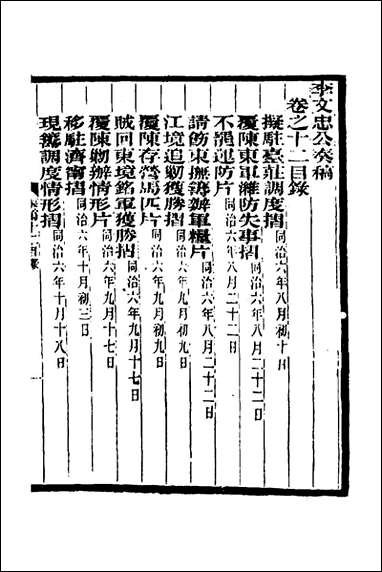 李文忠公奏稿
卷之十二目錄
擬駐臺莊調度摺同治六年八月初十日
覆陳東軍濰防失事摺同治六年八月二十二日
不罷運防片同治六年八月二十二日
請飭東撫籌辦軍糧片同治六年八月二十二日
江境追勦獲勝摺同治六年九月初九日
覆陳存營馬匹片同治六年九月初九日
賊回東境銘軍獲勝摺同治六年九月十七日
覆陳勦辦情形片同治六年九月十七日
移駐濟甯摺同治六年十月初三日
現籌調度情形摺同治六年十月十八日